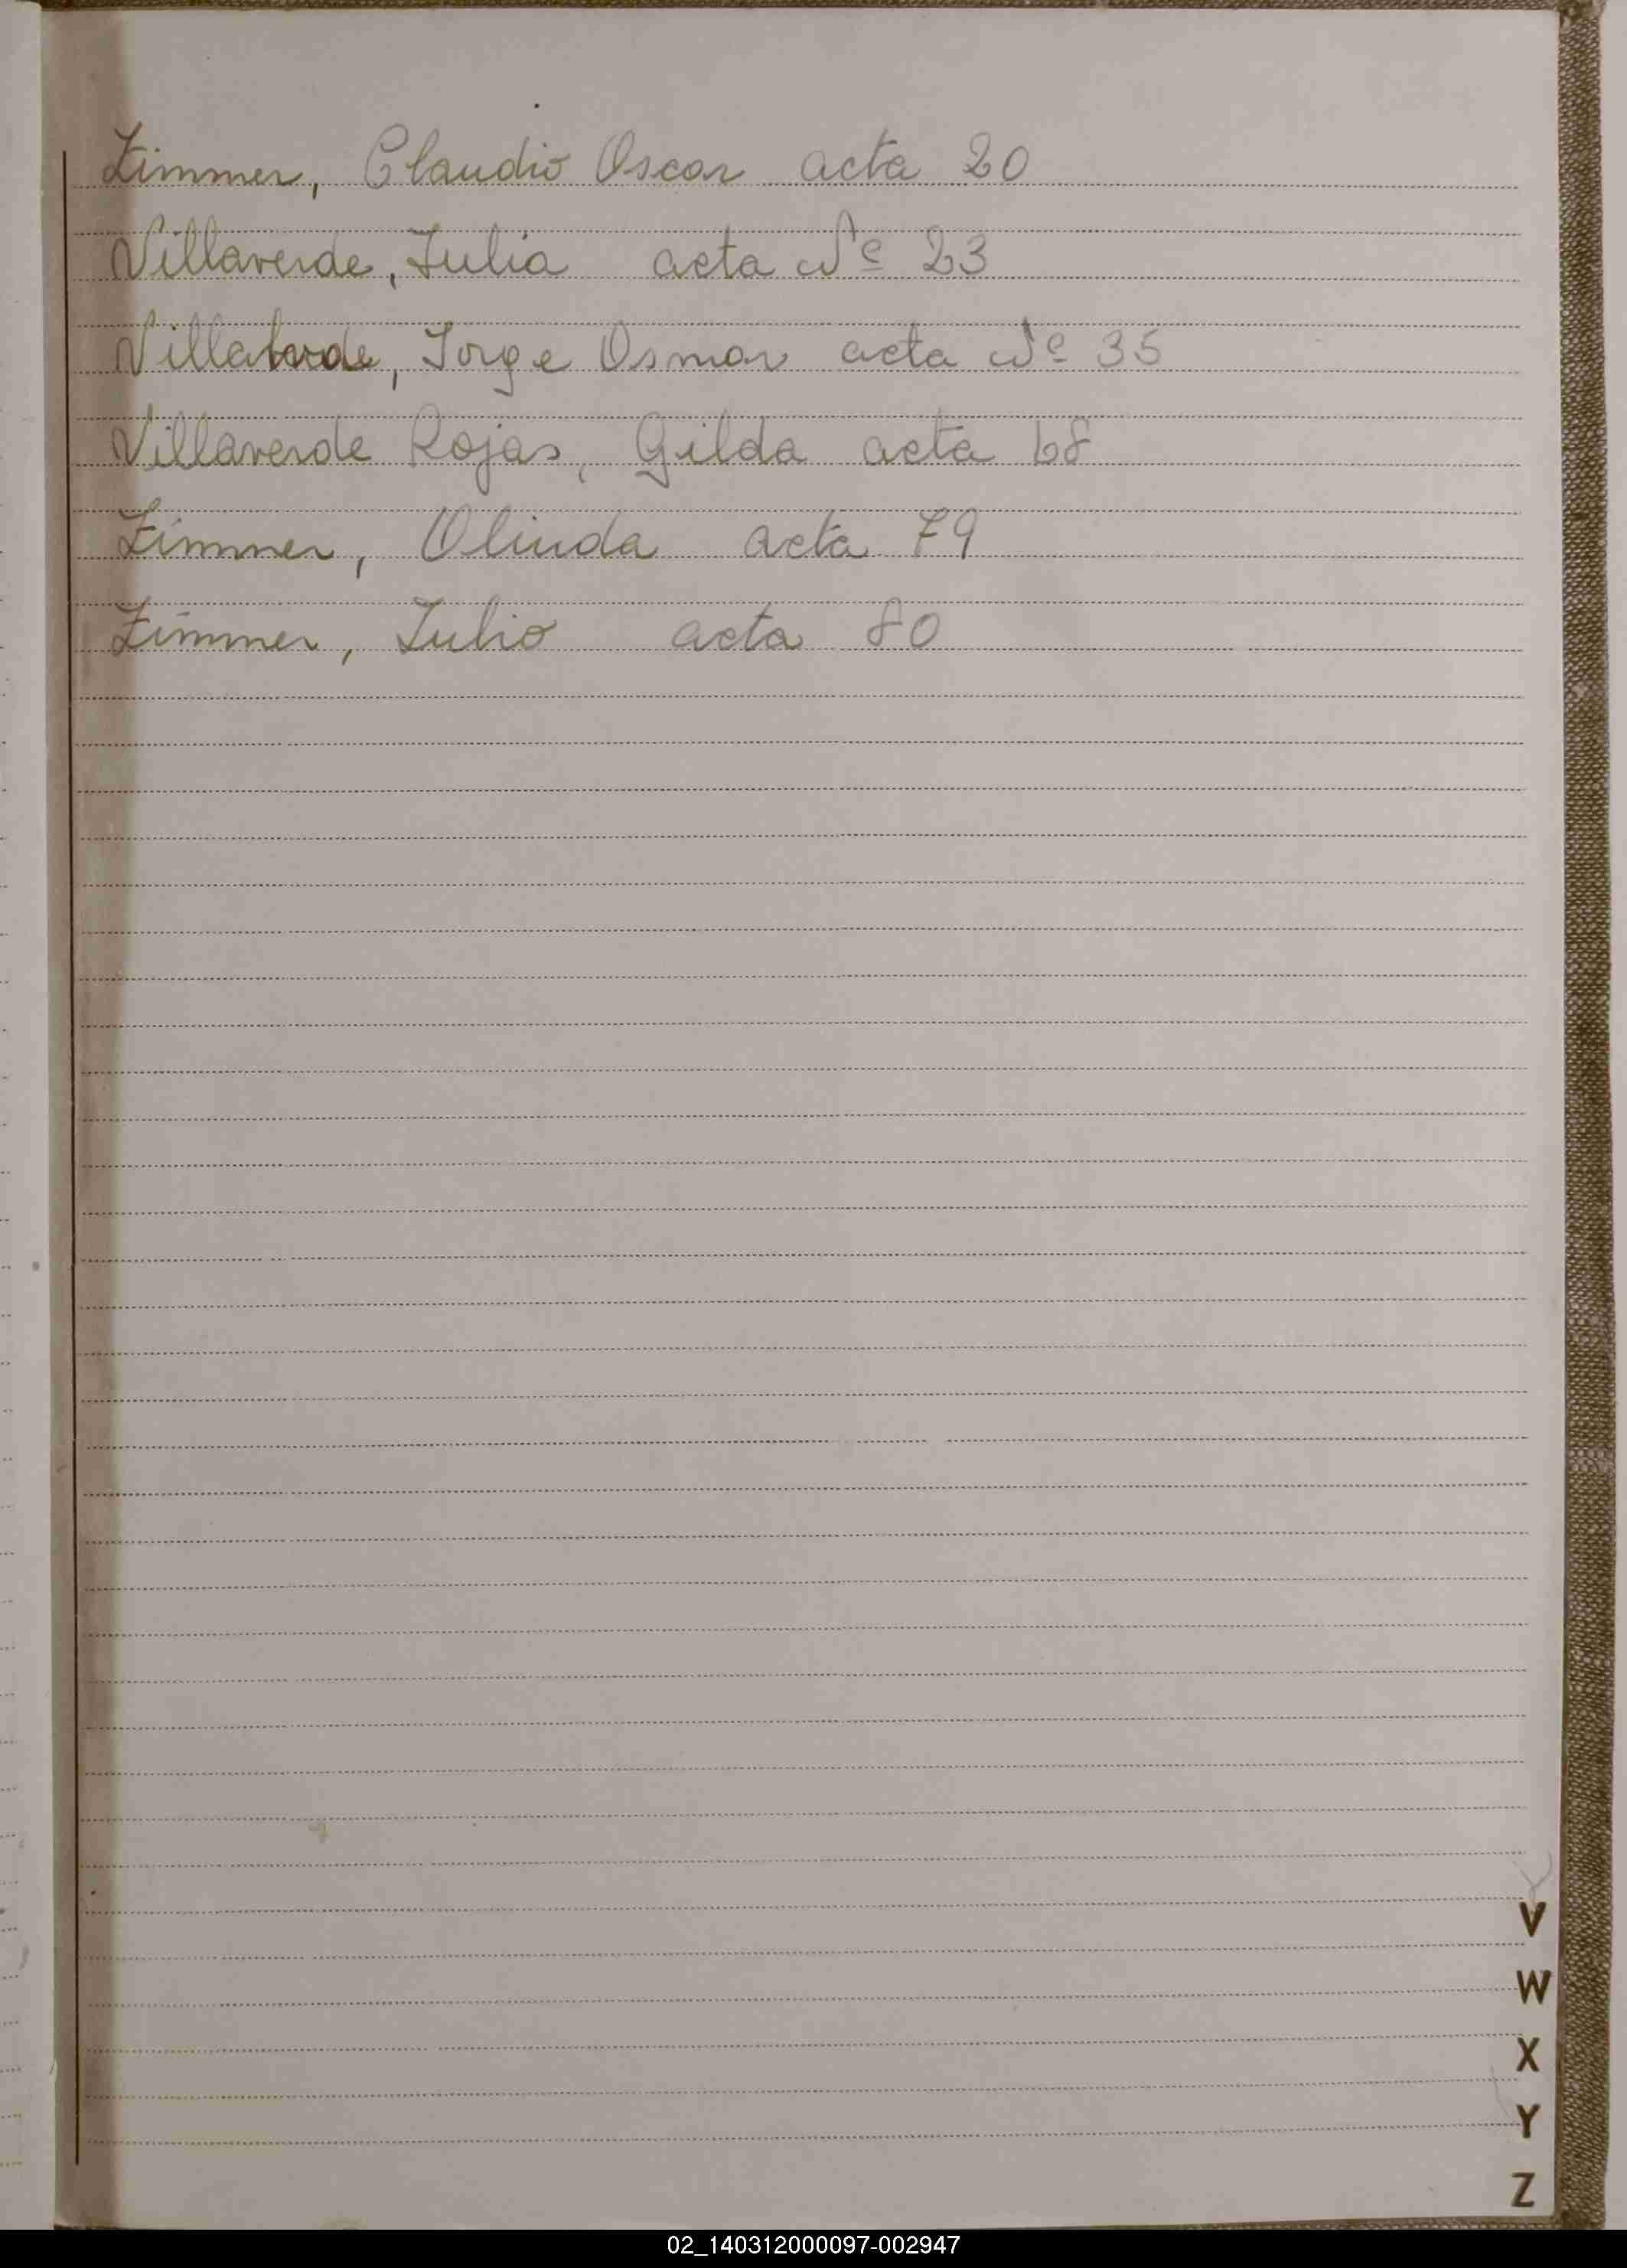 Zimmer, Claudio Oscar acta 20
Villaverde, Julia acta Nº 23
Villaverde, Jorge Osmar acta Nº 35
Villaverde Rojas, Gilda acta 68
Zimmer, Olinda acta 79
Zimmer, Julio acta 80
V
W
X
Y
Z
02_140312000097-002947